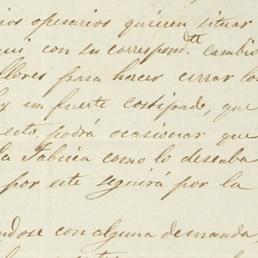 ios operarios quieren situar
qui con su correspond.te cambio
llores para hacer cerrar lo
y un fuerte costipado, que
esto, podrá ocasionar que
la Fabrica como lo deseaba
por este seguirá por la
endose con alguna demanda,